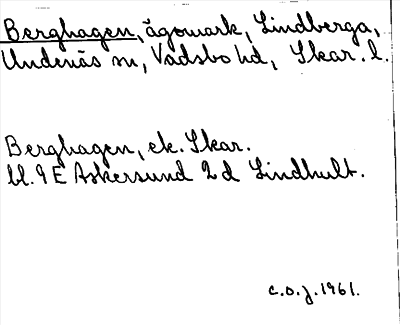 Berghagen, ägomark, Lindberga,
Undenäs sn, Vadsbo hd, Skar. l.
Berghagen, ek. Skar.
bl. 9E Askersund 2d Lindhult.
C.O.J. 1961.